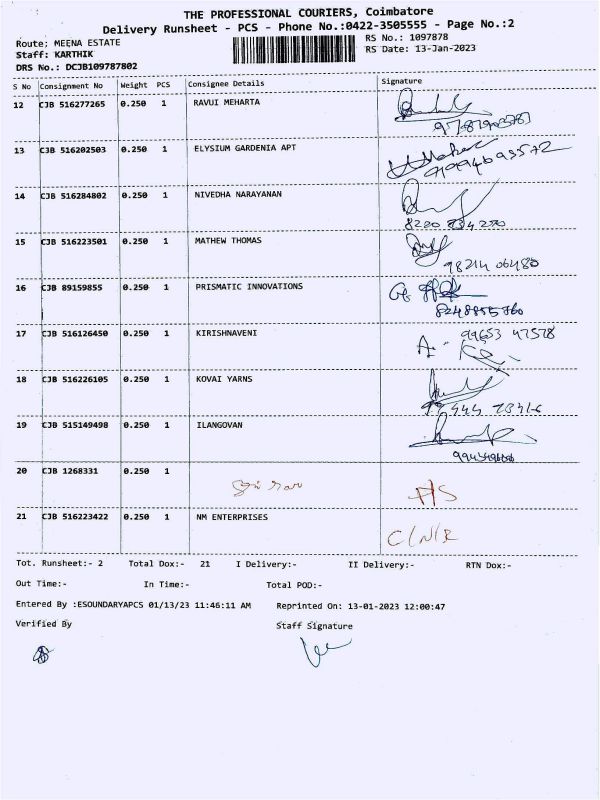 THE PROFESSIONAL COURIERS, Coimbatore
Delivery Runsheet - PCS - Phone No.:0422-3505555 - Page No.:2
Route: MEENA ESTATE
RS No.: 1097878
Staff: KARTHIK
RS Date: 13-Jan-2023
DRS No.: DCJB109787802
S No Consignment No Weight PCS Consignee Details Signature
12 CJB 516277265 0.250 1 RAVUI MEHARTA
13 CJB 516202503 0.250 1 ELYSIUM GARDENIA APT
14 CJB 516284802 0.250 1 NIVEDHA NARAYANAN
15 CJB 516223501 0.250 1 MATHEW THOMAS
98214 06480
16 CJB 89159855 0.250 1 PRISMATIC INNOVATIONS
17 CJB 516126450 0.250 1 KIRISHNAVENI
99653 47578
18 CJB 516226105 0.250 1 KOVAI YARNS
19 CJB 515149498 0.250 1 ILANGOVAN
20 CJB 1268331 0.250 1
21 CJB 516223422 0.250 1 NM ENTERPRISES C/N/R
Tot. Runsheet:- 2 Total Dox:- 21 I Delivery:- II Delivery:- RTN Dox:-
Out Time:- In Time:- Total POD:-
Entered By :ESOUNDARYAPCS 01/13/23 11:46:11 AM Reprinted On: 13-01-2023 12:00:47
Verified By Staff Signature